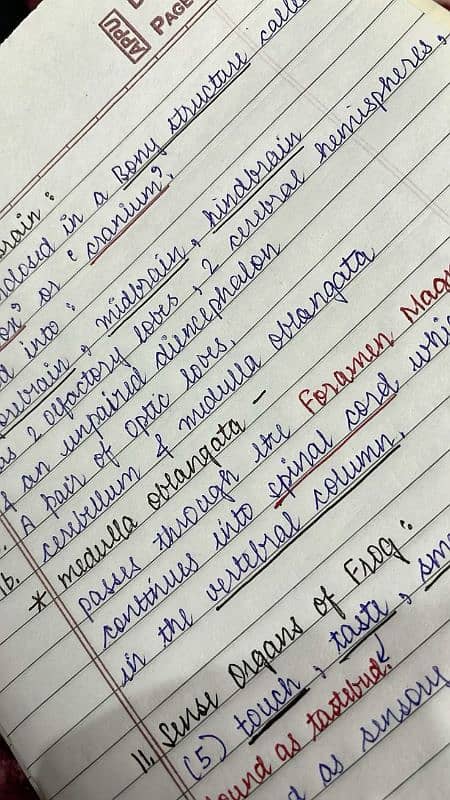 APPU
PAGE
brain :
nclosed in a Bony structure calle
on" or "cranium"
d into :
orebrain , midbrain , hindbrain
as 2 olfactory lobes , 2 cerebral hemispheres ,
& an unpaired diencephalon
A pair of optic lobes.
b. cerebellum & medulla oblangata
* medulla oblangata -
passes through the Foramen Mag
continues into spinal cord whi
in the vertebral column.
11. Sense Organs of Frog :
(5) touch , taste , sme
ound as tastebud.
d as sensory